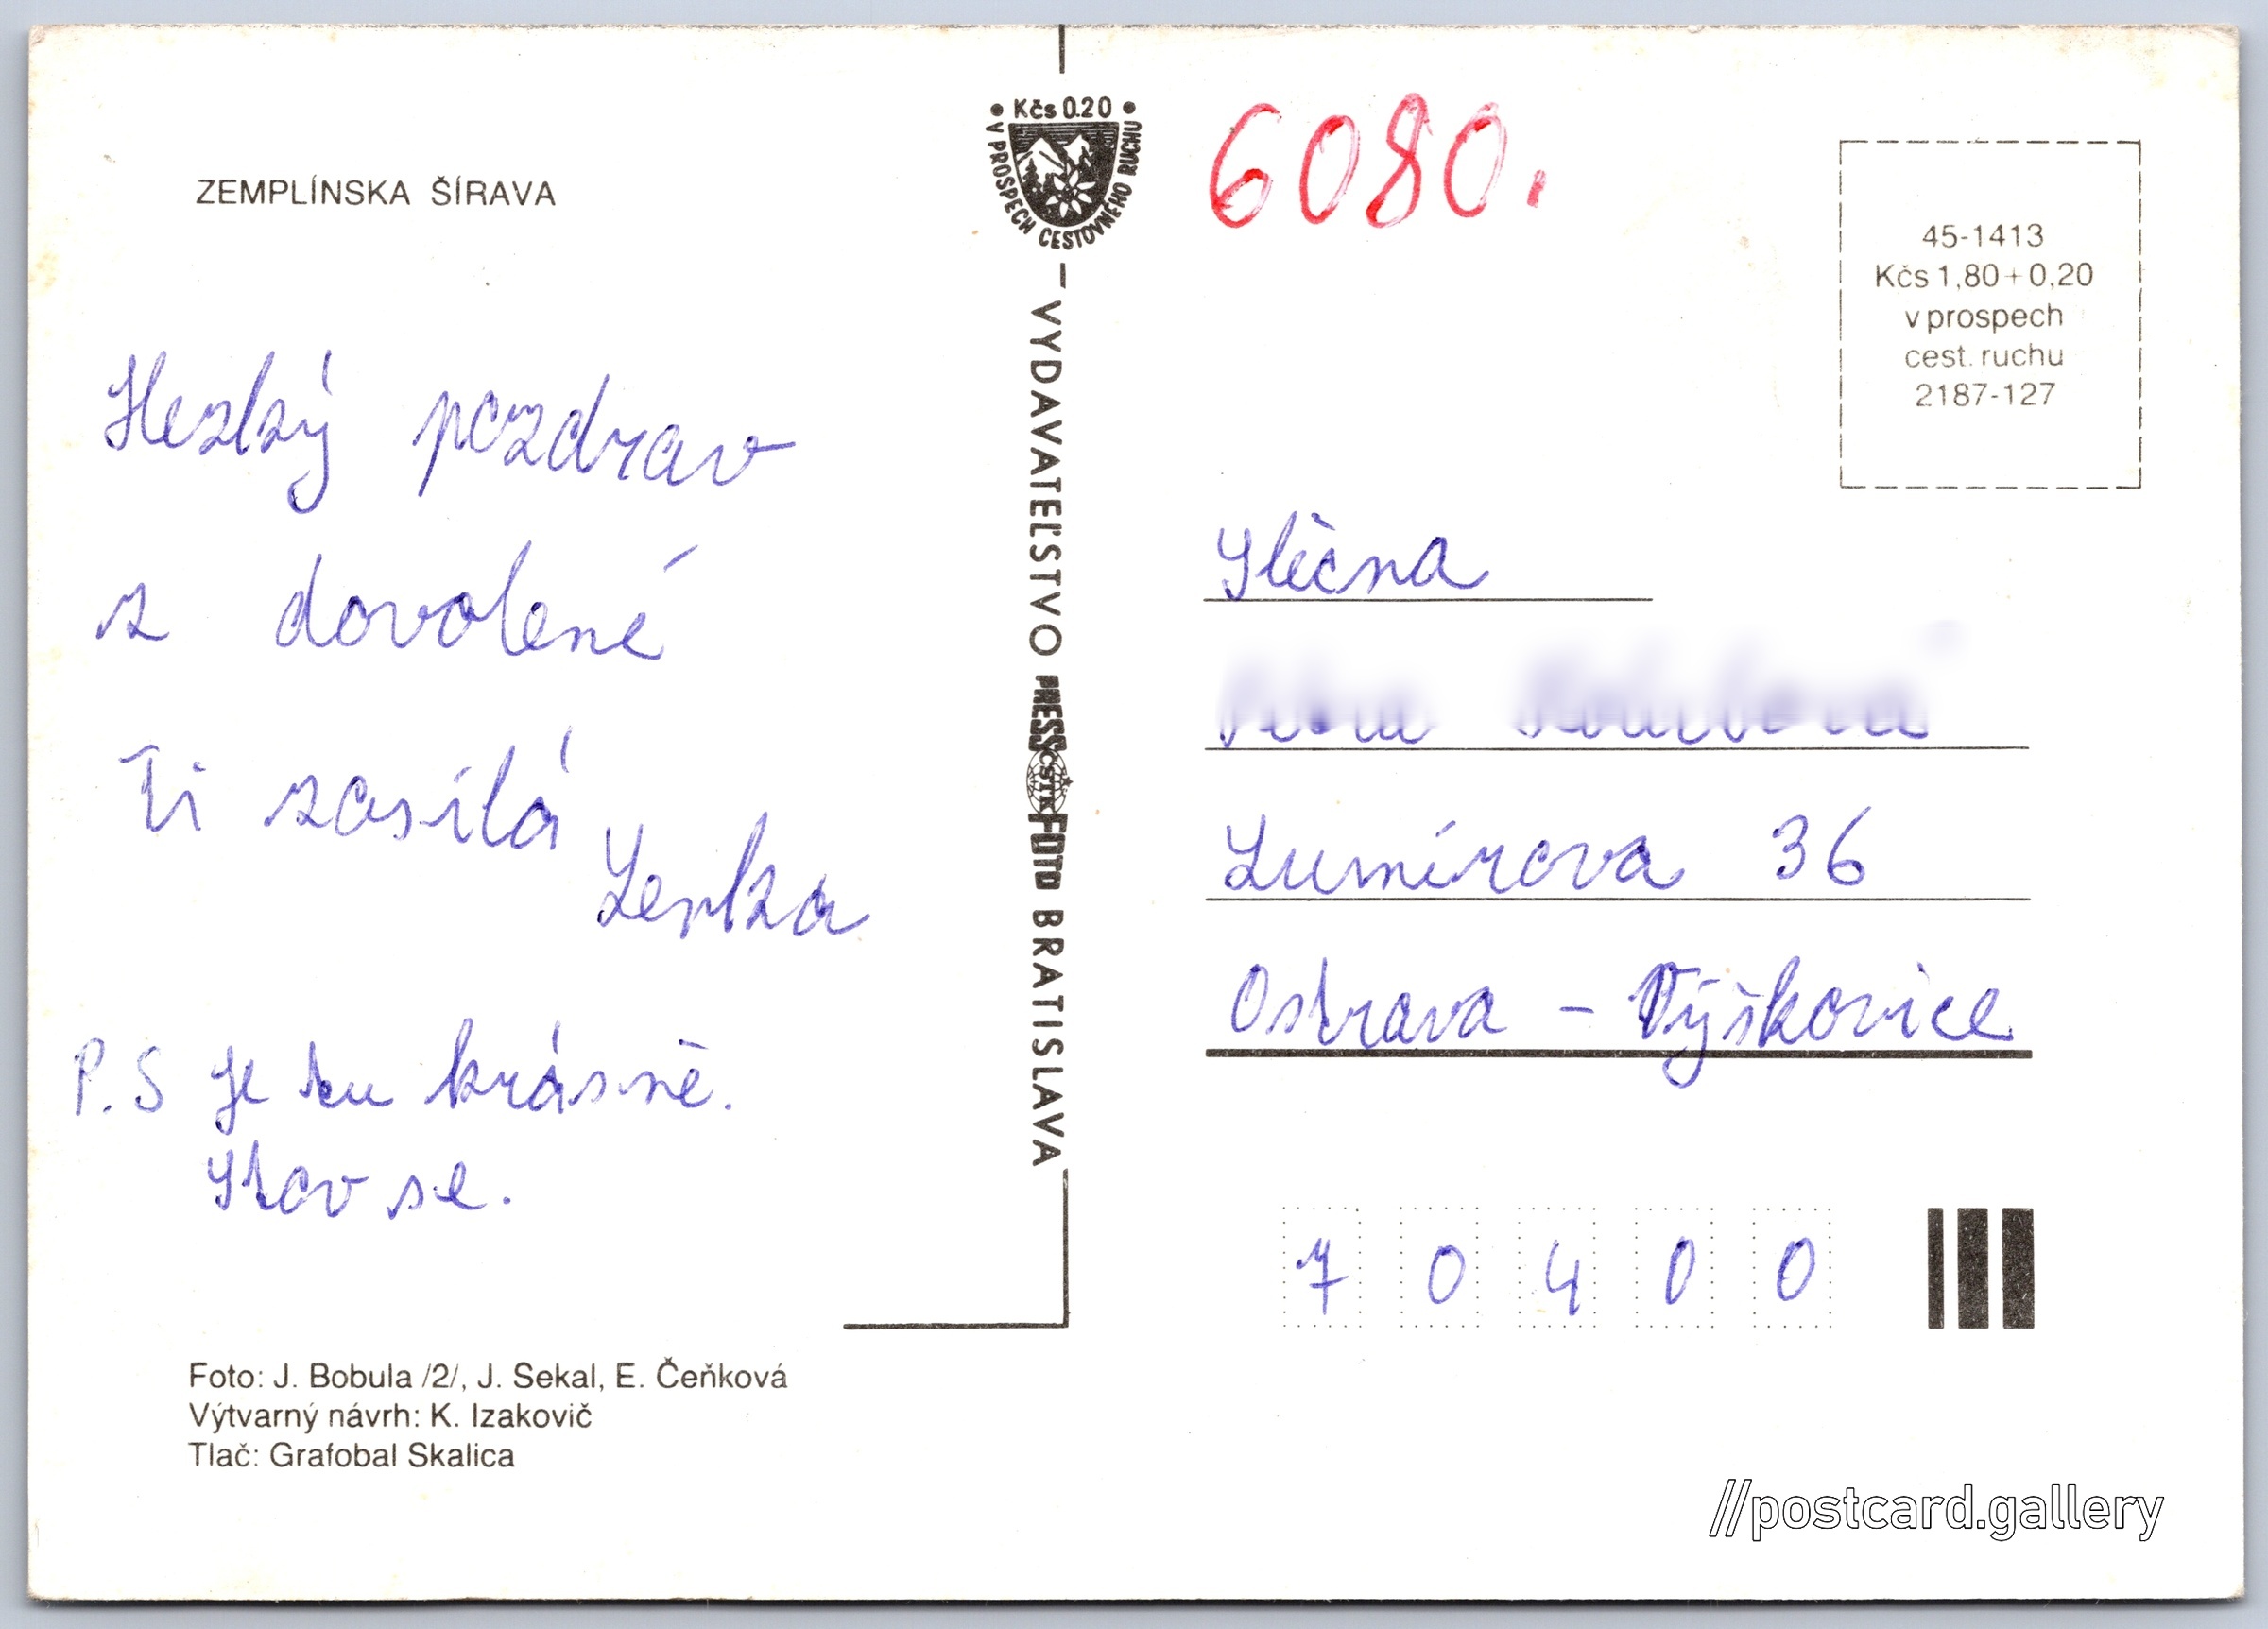 ZEMPLÍNSKA ŠÍRAVA
Hezký pozdrav
z dovolené
Ti zasílá
Lenka
P.S Je tu krásně.
Stav se.
Foto: J. Bobula /2/, J. Sekal, E. Čeňková
Výtvarný návrh: K. Izakovič
Tlač: Grafobal Skalica
• Kčs 0.20 •
V PROSPECH CESTOVNÉHO RUCHU
VYDAVATEĽSTVO PRESSFOTO BRATISLAVA
ČSTK
6080.
45-1413
Kčs 1,80+0,20
v prospech
cest. ruchu
2187-127
Slečna
Lumírova 36
Ostrava - Výškovice
70400
//postcard.gallery